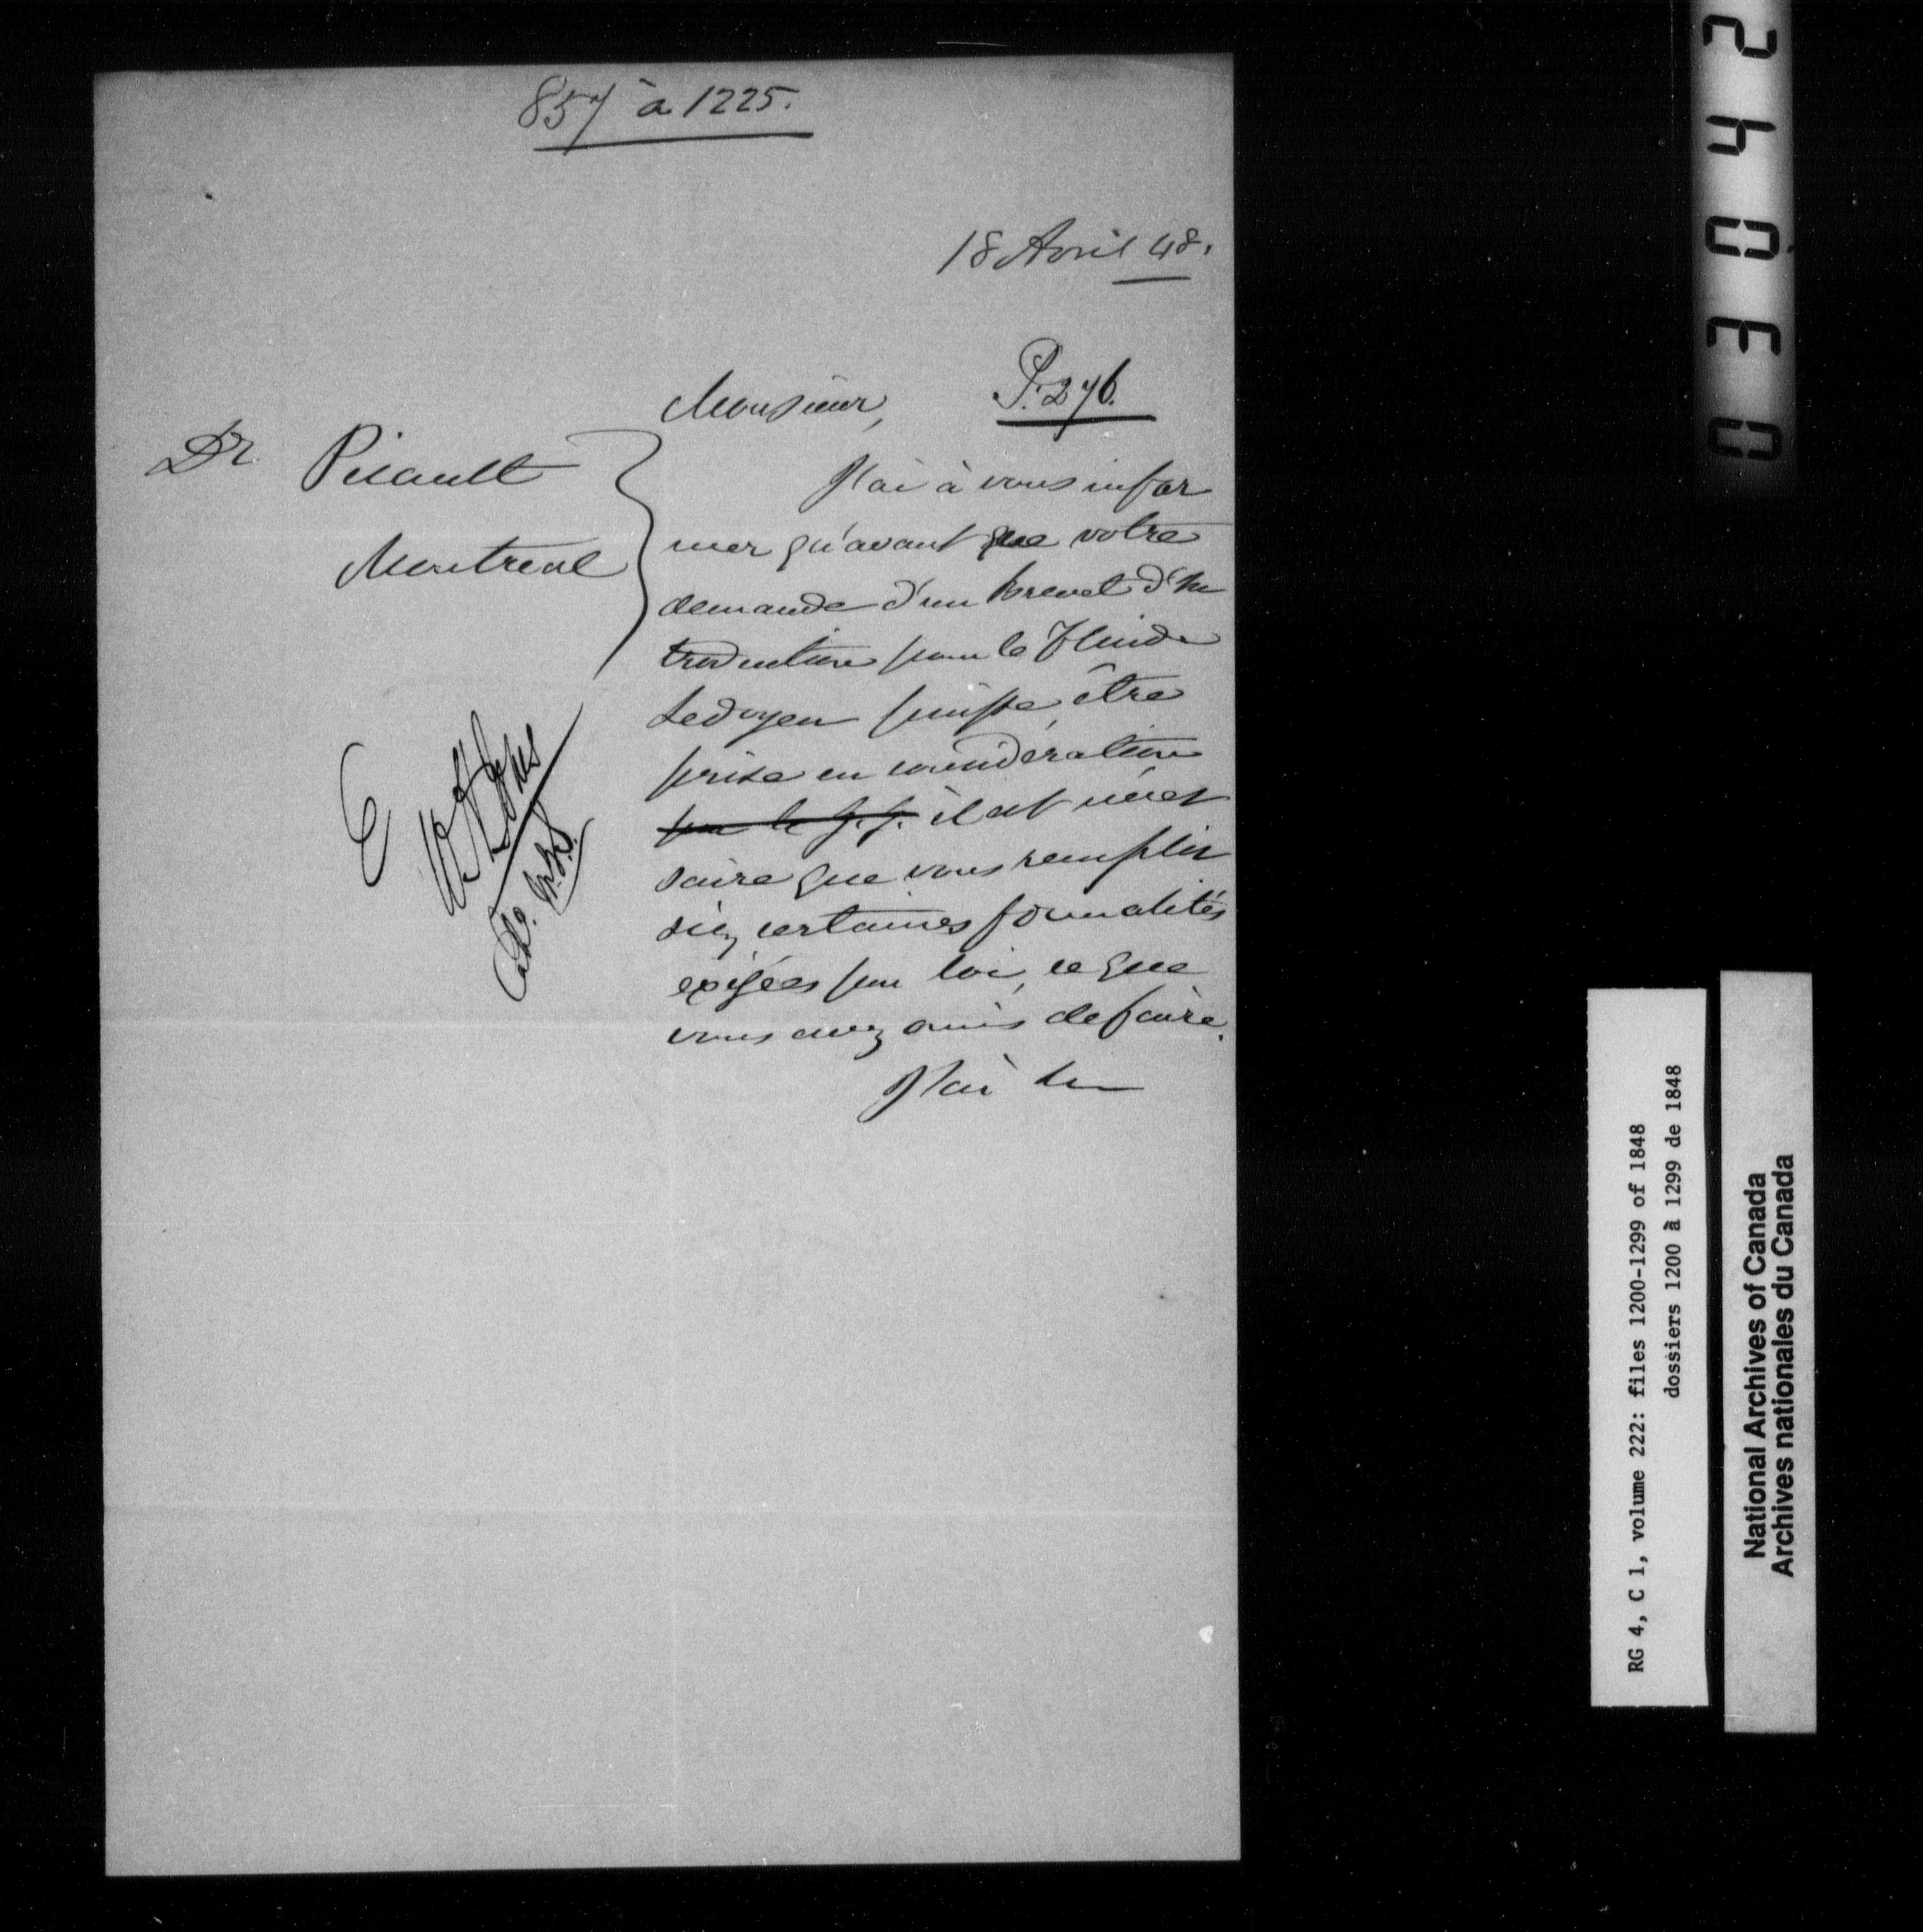 857 à 1225.
18 Avril 48.
P. 276.
Monsieur,
Dr Picault
Montreal
J'ai à vous infor
mer qu'avant que votre
demande d'un Brevet d'In
troduction pour le Fluide
Ledoyen puisse être
prise en considération
par le G. G. il est néces
saire que vous remplis
siez certaines formalités
exigées par loi, ce que
vous avez omis de faire.
J'ai
E
02403
RG 4, C 1, volume 222: files 1200-1299 of 1848
dossiers 1200 à 1299 de 1848
National Archives of Canada
Archives nationales du Canada